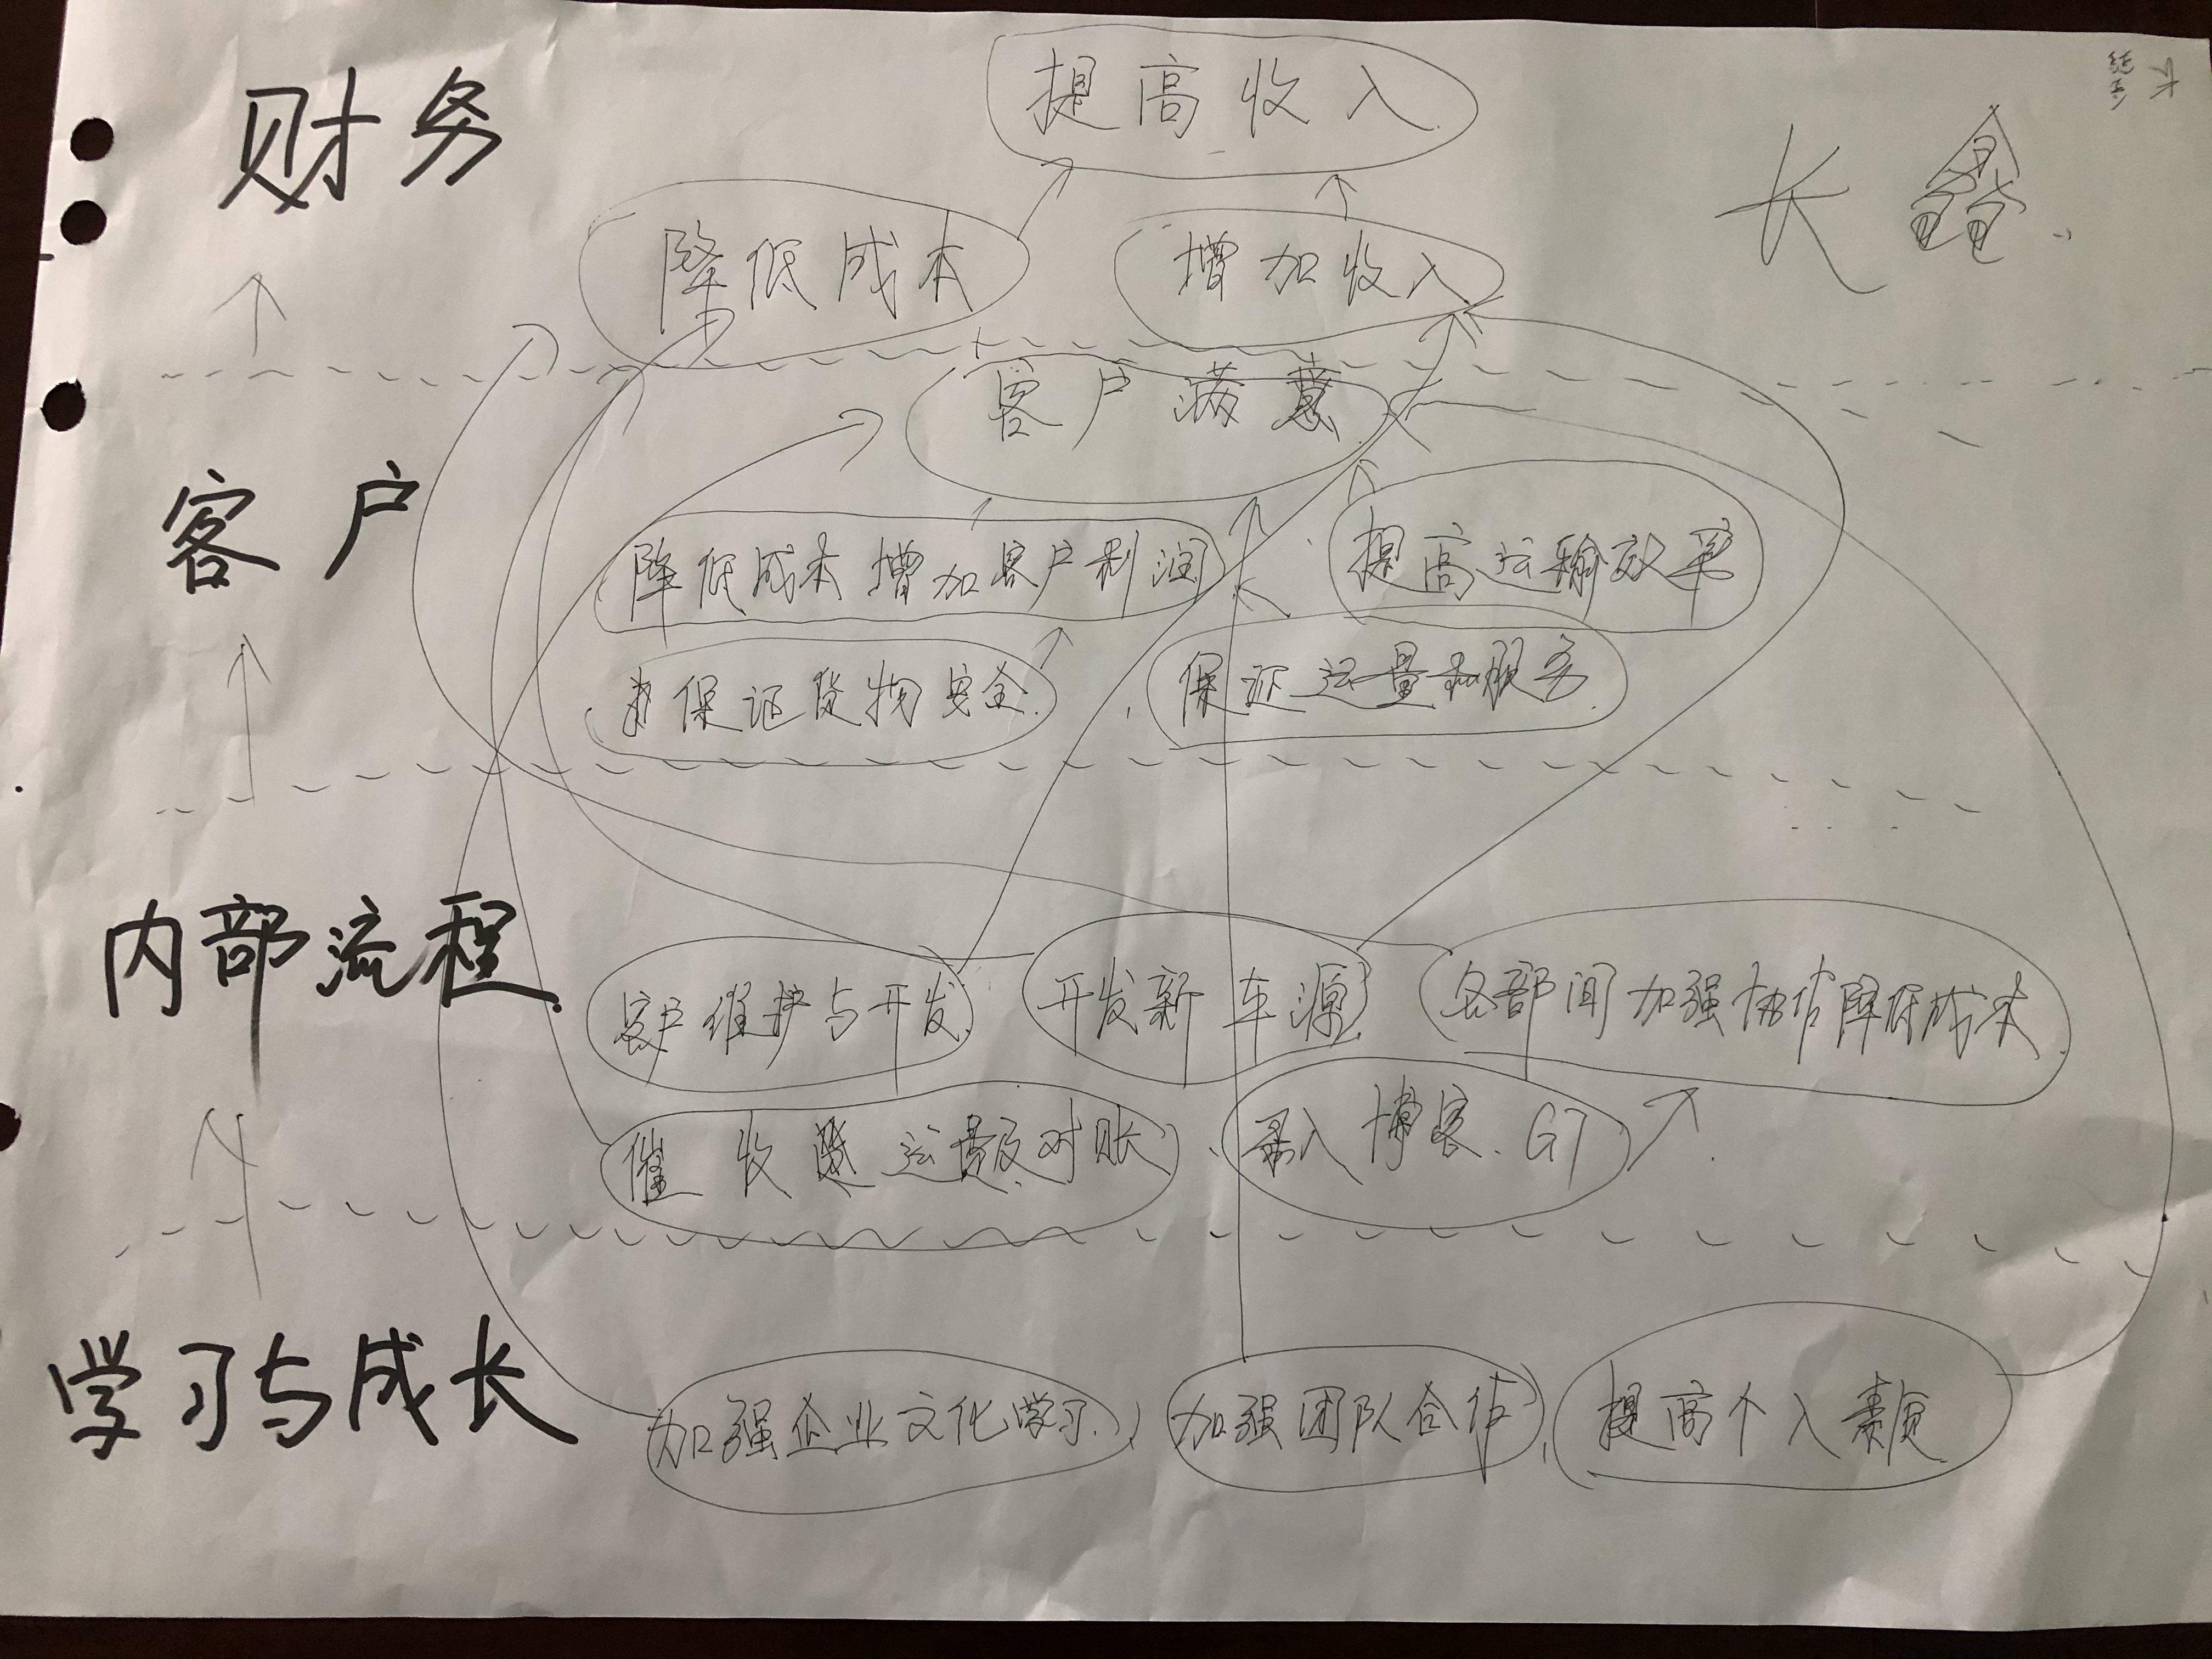 财务
提高收入
长鑫
降低成本
增加收入
客户
客户满意
降低成本增加客户利润
提高运输效率
保证货物安全
保证运量和服务
内部流程
客户维护与开发
开发新车源
各部间加强协作降低成本
催收运费及对账
录入博客、G7
学习与成长
加强企业文化学习、
加强团队合作、
提高个人素质